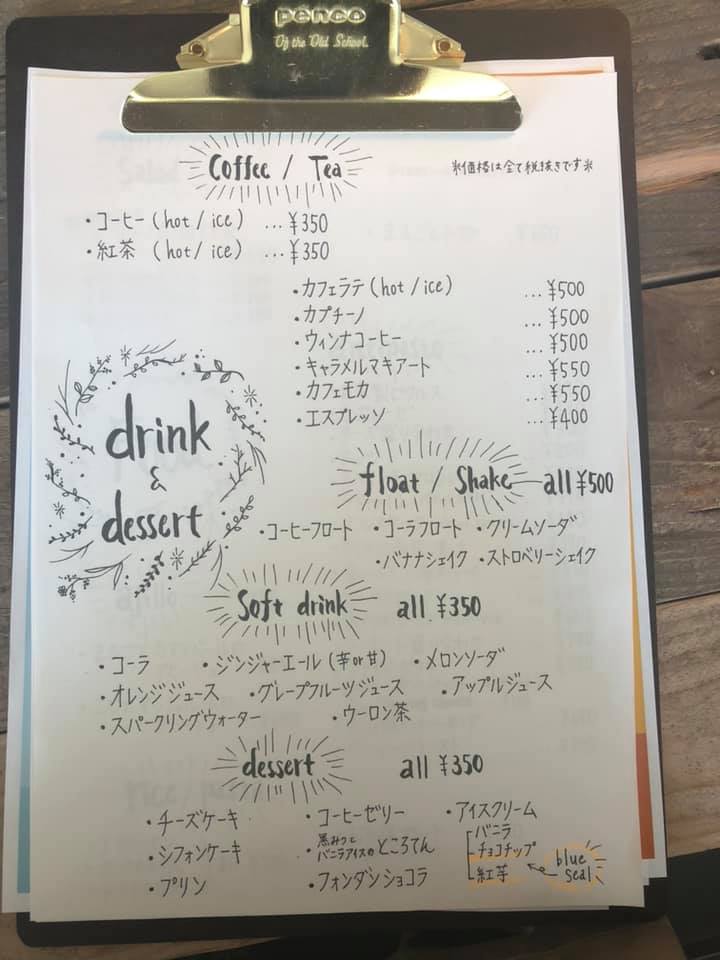 penco
Of the Old School.
Coffee / Tea
※価格は全て税抜きです※
・コーヒー (hot / ice) ...¥350
・紅茶 (hot / ice) ...¥350
・カフェラテ (hot / ice) ...¥500
・カプチーノ ...¥500
・ウィンナコーヒー ...¥500
・キャラメルマキアート ...¥550
・カフェモカ ...¥550
・エスプレッソ ...¥400
drink
&
dessert
float / Shake all ¥500
・コーヒーフロート ・コーラフロート ・クリームソーダ
・バナナシェイク ・ストロベリーシェイク
Soft drink all ¥350
・コーラ ・ジンジャーエール (辛or甘) ・メロンソーダ
・オレンジジュース ・グレープフルーツジュース ・アップルジュース
・スパークリングウォーター ・ウーロン茶
dessert all ¥350
・チーズケーキ ・コーヒーゼリー ・アイスクリーム
バニラ
・シフォンケーキ ・黒みつとバニラアイスのところてん チョコチップ
・プリン ・フォンダンショコラ 紅芋
blue
seal